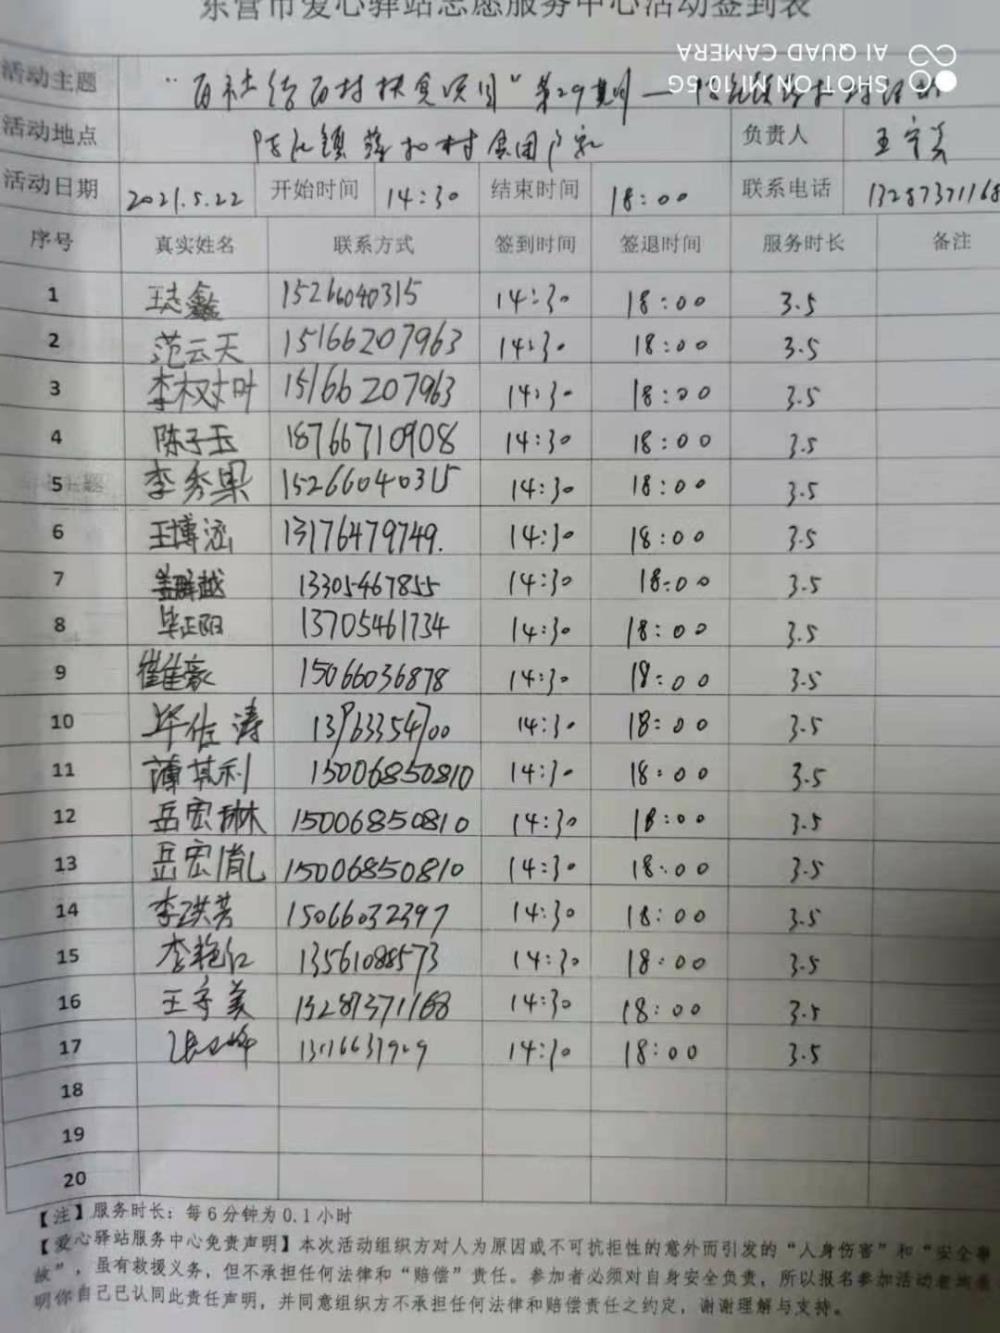 东营市爱心驿站志愿服务中心活动签到表
SHOT ON MI 10 5G
AI QUAD CAMERA
活动主题 "百社结百村扶贫项目"第29期—
活动地点 村贫困户家 负责人 王守美
活动日期 2021.5.22 开始时间 14:30 结束时间 18:00 联系电话 13287371168
序号 真实姓名 联系方式 签到时间 签退时间 服务时长 备注
1 王志鑫 15266040315 14:30 18:00 3.5
2 范云天 15166207963 14:30 18:00 3.5
3 李树叶 15166207963 14:30 18:00 3.5
4 陈子玉 18766710908 14:30 18:00 3.5
5 李秀果 15266040315 14:30 18:00 3.5
6 王博涵 13176479749. 14:30 18:00 3.5
7 13305467855 14:30 18:00 3.5
8 毕正阳 13705461734 14:30 18:00 3.5
9 崔佳豪 15066036878 14:30 18:00 3.5
10 毕作涛 13963354700 14:30 18:00 3.5
11 薄其利 15006850810 14:30 18:00 3.5
12 岳宏琳 15006850810 14:30 18:00 3.5
13 岳宏胤 15006850810 14:30 18:00 3.5
14 李洪芳 15066032397 14:30 18:00 3.5
15 李艳红 13561088573 14:30 18:00 3.5
16 王守美 13287371168 14:30 18:00 3.5
17 14:30 18:00 3.5
18
19
20
【注】服务时长：每6分钟为0.1小时
【爱心驿站服务中心免责声明】本次活动组织方对人为原因或不可抗拒性的意外而引发的"人身伤害"和"安全事
故"，虽有救援义务，但不承担任何法律和"赔偿"责任。参加者必须对自身安全负责，所以报名参加活动者均表
明你自己已认同此责任声明，并同意组织方不承担任何法律和赔偿责任之约定，谢谢理解与支持。